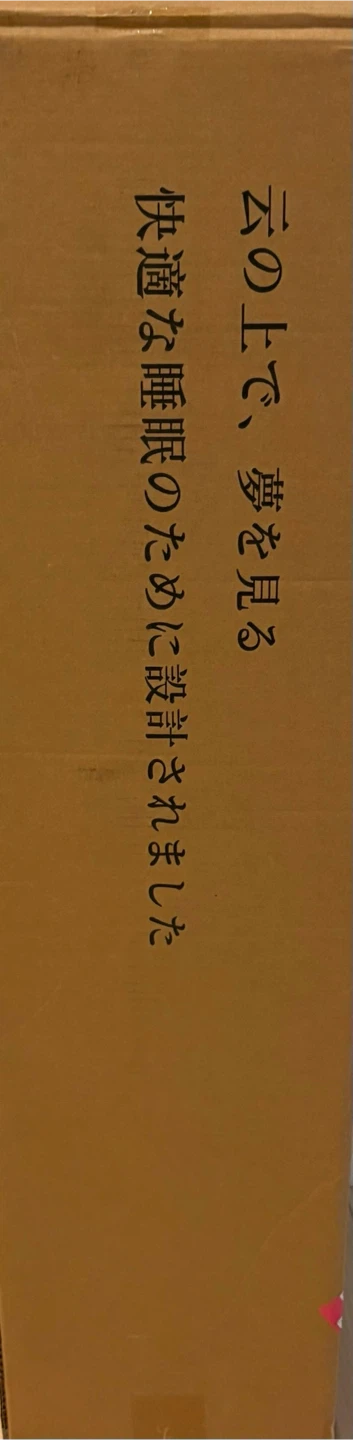 云の上で、夢を見る
快適な睡眠のために設計されました